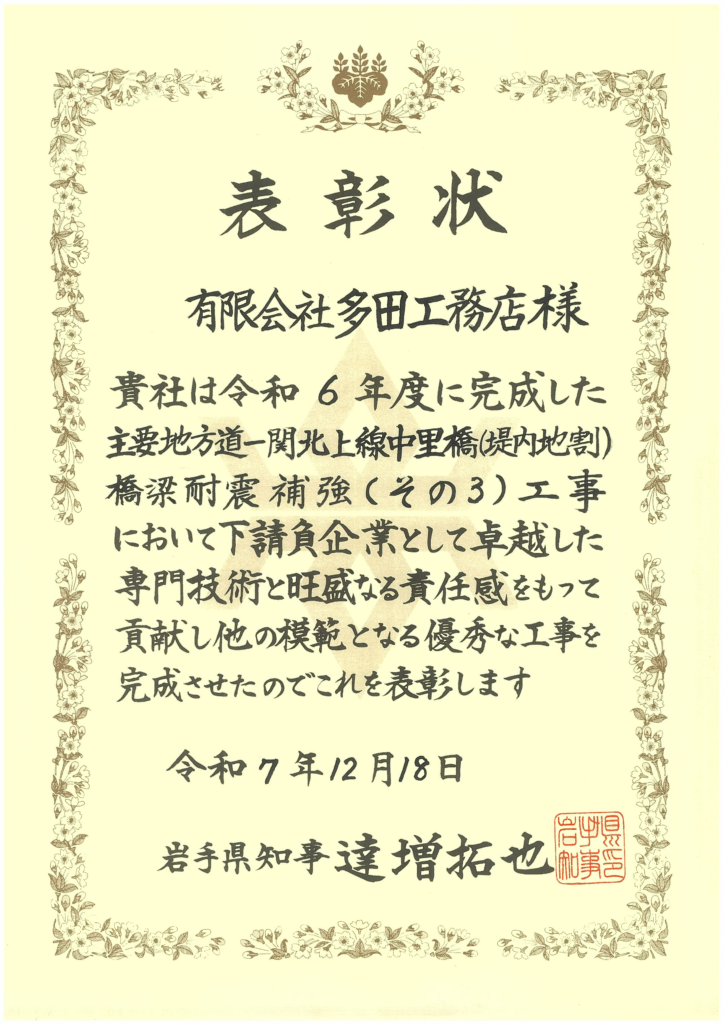 表彰状
有限会社多田工務店様
貴社は令和6年度に完成した
主要地方道一関北上線中里橋(堤内地割)
橋梁耐震補強(その3)工事
において下請負企業として卓越した
専門技術と旺盛なる責任感をもって
貢献し他の模範となる優秀な工事を
完成させたのでこれを表彰します
令和7年12月18日
岩手県知事 達増拓也
岩手県知事印